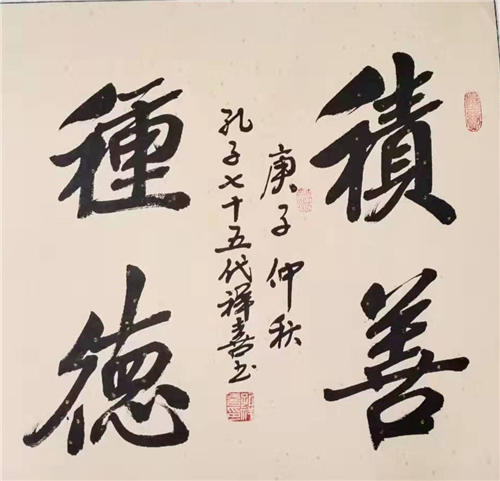 積善
種德
庚子仲秋
孔子七十五代祥喜书